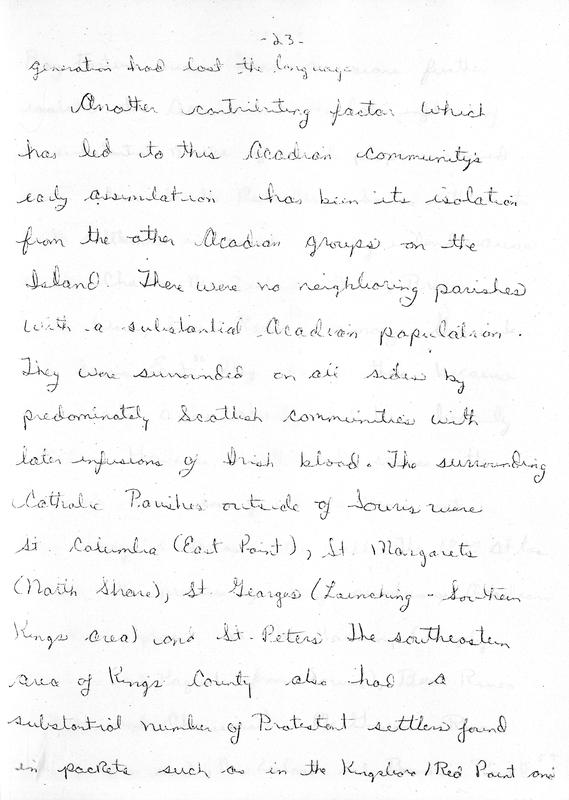 -23-
generation had lost the language.
Another contributing factor which
has led to this Acadian community's
early assimilation has been its isolation
from the other Acadian groups on the
Island. There were no neighboring parishes
with a substantial Acadian population.
They were surrounded on all sides by
predominately Scottish communities with
later infusions of Irish blood. The surrounding
Catholic Parishes outside of Souris were
St. Columba (East Point), St. Margarets
(North Shore), St. Georges (Launching - Southern
Kings area) and St. Peters. The southeastern
area of Kings County also had a
substantial number of Protestant settlers found
in pockets such as in the Kingsboro/Red Point and